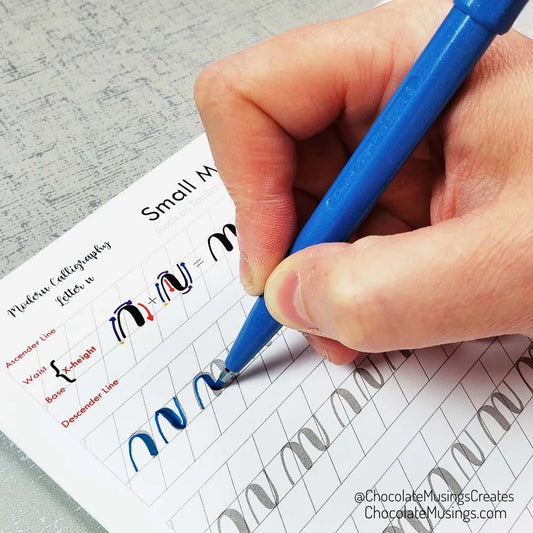 Small M
Modern Calligraphy
Letter n
Ascender Line
Waist
x-height
Base
Descender Line
n + n = n
n n n
@ChocolateMusingsCreates
ChocolateMusings.com